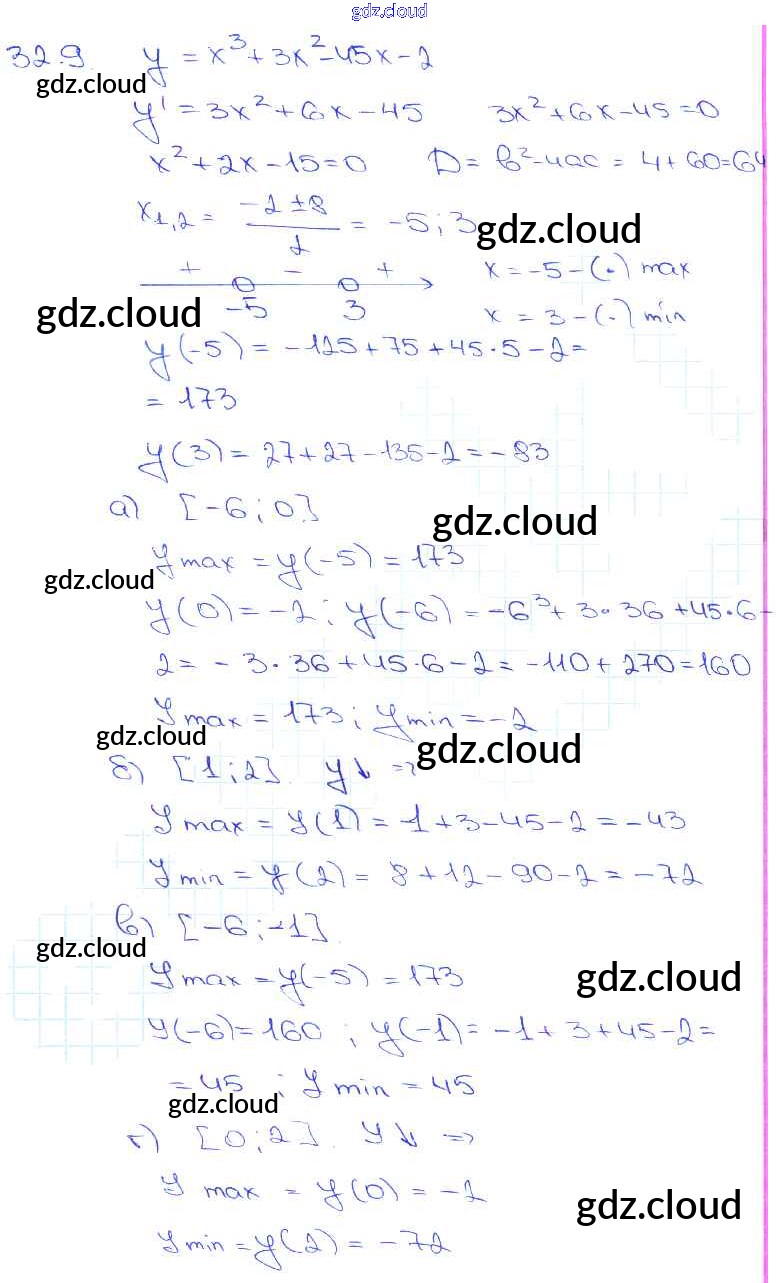 gdz.cloud
32.9. y = x³ + 3x² - 45x - 2
gdz.cloud
y' = 3x² + 6x - 45 3x² + 6x - 45 = 0
x² + 2x - 15 = 0 D = b² - 4ac = 4 + 60 = 64
x₁,₂ = (-2 ± 8)/2 = -5; 3
gdz.cloud
+ - + x = -5 - (·) max
-5 3 x = 3 - (·) min
gdz.cloud
y(-5) = -125 + 75 + 45·5 - 2 =
= 173
y(3) = 27 + 27 - 135 - 2 = -83
а) [-6; 0]
gdz.cloud
y max = y(-5) = 173
gdz.cloud
y(0) = -2; y(-6) = -6³ + 3·36 + 45·6 -
2 = - 3·36 + 45·6 - 2 = -110 + 270 = 160
y max = 173; y min = -2
gdz.cloud
gdz.cloud
б) [1; 2] y↓ ⇒
y max = y(1) = 1 + 3 - 45 - 2 = -43
y min = y(2) = 8 + 12 - 90 - 2 = -72
в) [-6; -1]
gdz.cloud
y max = y(-5) = 173
gdz.cloud
y(-6) = 160; y(-1) = -1 + 3 + 45 - 2 =
= 45; y min = 45
gdz.cloud
г) [0; 2]. y↓ ⇒
y max = y(0) = -2
gdz.cloud
y min = y(2) = -72